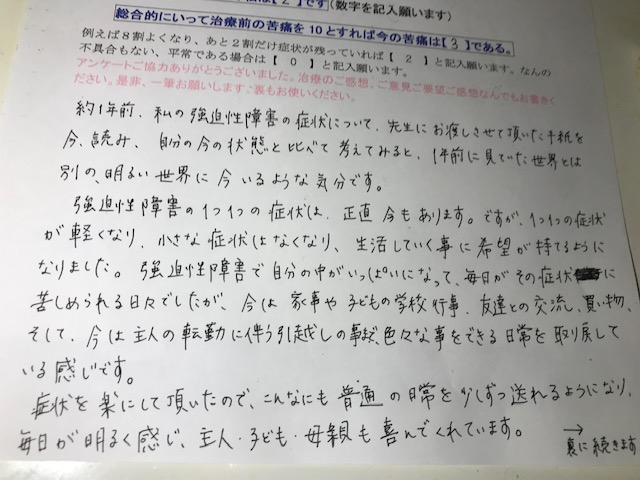 【2】です(数字を記入願います)
総合的にいって治療前の苦痛を10とすれば今の苦痛は【3】である。
例えば8割よくなり、あと2割だけ症状が残っていれば【 2 】と記入願います。なんの
不具合もない、平常である場合は【 0 】と記入願います。
アンケートご協力ありがとうございました。治療のご感想、ご意見ご要望ご感想なんでもお書きく
ださい。是非、一筆お願いします、裏もお使いください。
約1年前、私の強迫性障害の症状について、先生にお渡しさせて頂いた手紙を
今、読み、自分の今の状態と比べて考えてみると、1年前に見ていた世界とは
別の、明るい世界に今いるような気分です。
強迫性障害の1つ1つの症状は、正直今もあります。ですが、1つ1つの症状
が軽くなり、小さな症状はなくなり、生活していく事に希望が持てるように
なりました。強迫性障害で自分の中がいっぱいになって、毎日がその症状に
苦しめられる日々でしたが、今は家事や子どもの学校行事、友達との交流、買い物、
そして、今は主人の転勤に伴う引越しの事まで、色々な事をできる日常を取り戻して
いる感じです。
症状を楽にして頂いたので、こんなにも普通の日常を少しずつ送れるようになり、
毎日が明るく感じ、主人・子ども・母親も喜んでくれています。
→
裏に続きます